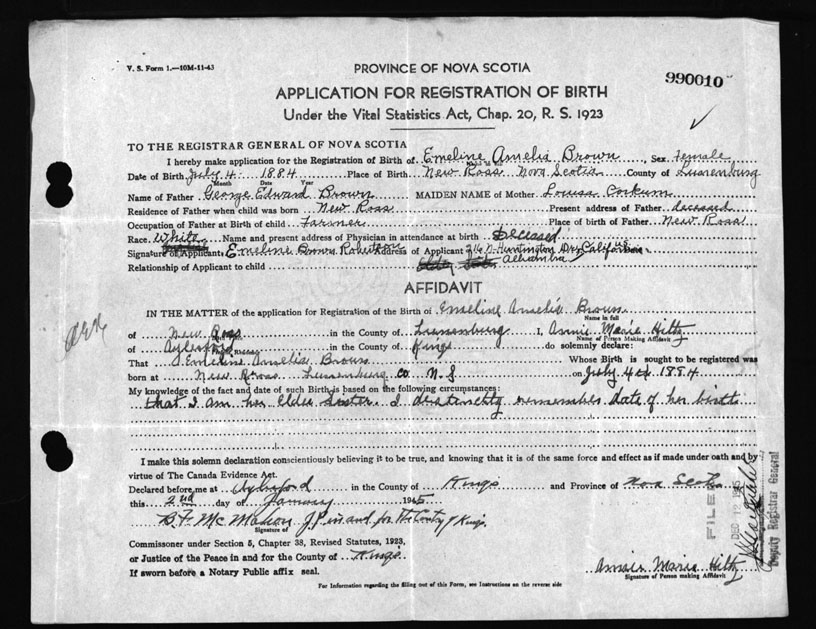 V. S. Form 1.—10M-11-43
PROVINCE OF NOVA SCOTIA
990010
APPLICATION FOR REGISTRATION OF BIRTH
Under the Vital Statistics Act, Chap. 20, R. S. 1923
TO THE REGISTRAR GENERAL OF NOVA SCOTIA
I hereby make application for the Registration of Birth of Emeline Amelia Brown, Sex female
Date of Birth July 4 1884 Place of Birth New Ross Nova Scotia County of Lunenburg
Month Date Year
Name of Father George Edward Brown MAIDEN NAME of Mother Louisa Corkum
Residence of Father when child was born New Ross Present address of Father deceased
Occupation of Father at Birth of child Farmer Place of birth of Father New Ross
Race White Name and present address of Physician in attendance at birth Deceased
Signature of Applicant Emeline Brown Robertson Address of Applicant 216 N. Huntington Dr. Calif
Relationship of Applicant to child Alhambra
AFFIDAVIT
IN THE MATTER of the application for Registration of the Birth of Emeline Amelia Brown
Name in full
of New Ross in the County of Lunenburg I, Annie Marie Hiltz
Name of Person Making Affidavit
of Aylesford in the County of Kings do solemnly declare:
That Emeline Amelia Brown Whose Birth is sought to be registered was
born at New Ross Lunenburg Co N.S on July 4th 1884
My knowledge of the fact and date of such Birth is based on the following circumstances:
that I am her Elder Sister. I distinctly remember date of her birth
I make this solemn declaration conscientiously believing it to be true, and knowing that it is of the same force and effect as if made under oath and by
virtue of The Canada Evidence Act.
Declared before me at Aylesford in the County of Kings and Province of Nova Scotia
this 2nd day of January 1945
B.F. McMahon J.P. in and for The County of Kings.
Signature of
Commissioner under Section 5, Chapter 38, Revised Statutes, 1923,
or Justice of the Peace in and for the County of Kings
If sworn before a Notary Public affix seal.
Annie Marie Hiltz
Signature of Person making Affidavit
For Information regarding the filling out of this Form, see Instructions on the reverse side
FILED
DEC 12 1945
Deputy Registrar General